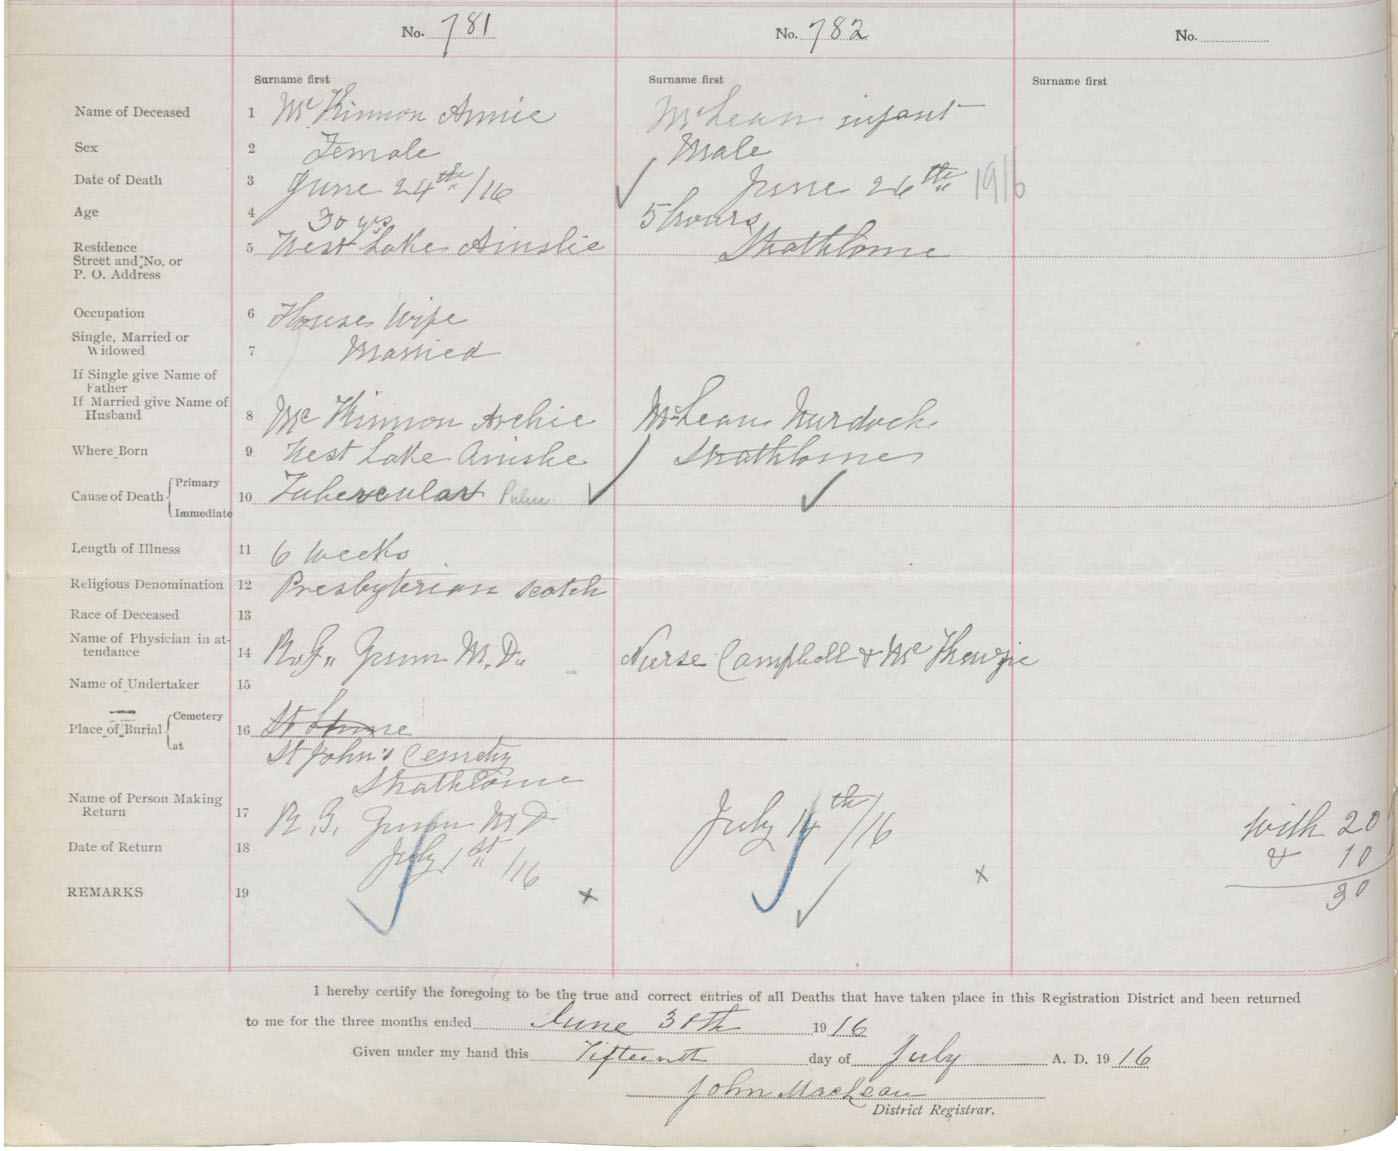 No. 781 No. 782 No.
Surname first Surname first Surname first
Name of Deceased 1 McKinnon Annie McLean infant
Sex 2 Female Male
Date of Death 3 June 24th/16 June 26th 1916
Age 4 30 yrs 5 hours
Residence 5 West Lake Ainslie Strathlorne
Street and No. or
P. O. Address
Occupation 6 House Wife
Single, Married or
Widowed 7 Married
If Single give Name of
Father
If Married give Name of
Husband 8 McKinnon Archie McLean Murdock
Where Born 9 West Lake Ainslie Strathlorne
Primary
Cause of Death 10 Tubercular Pulm.
Immediate
Length of Illness 11 6 weeks
Religious Denomination 12 Presbyterian scotch
Race of Deceased 13
Name of Physician in at-
tendance 14 Gunn M.D. Nurse Campbell & McKenzie
Name of Undertaker 15
Cemetery
Place of Burial 16 St
at St John's Cemetry
Strathlorne
Name of Person Making
Return 17 Gunn M D July 14th/16 with 20
Date of Return 18 July 1st/16 & 10
REMARKS 19 x x 30
I hereby certify the foregoing to be the true and correct entries of all Deaths that have taken place in this Registration District and been returned
to me for the three months ended June 30th 1916
Given under my hand this Fifteenth day of July A. D. 1916
John MacLean
District Registrar.